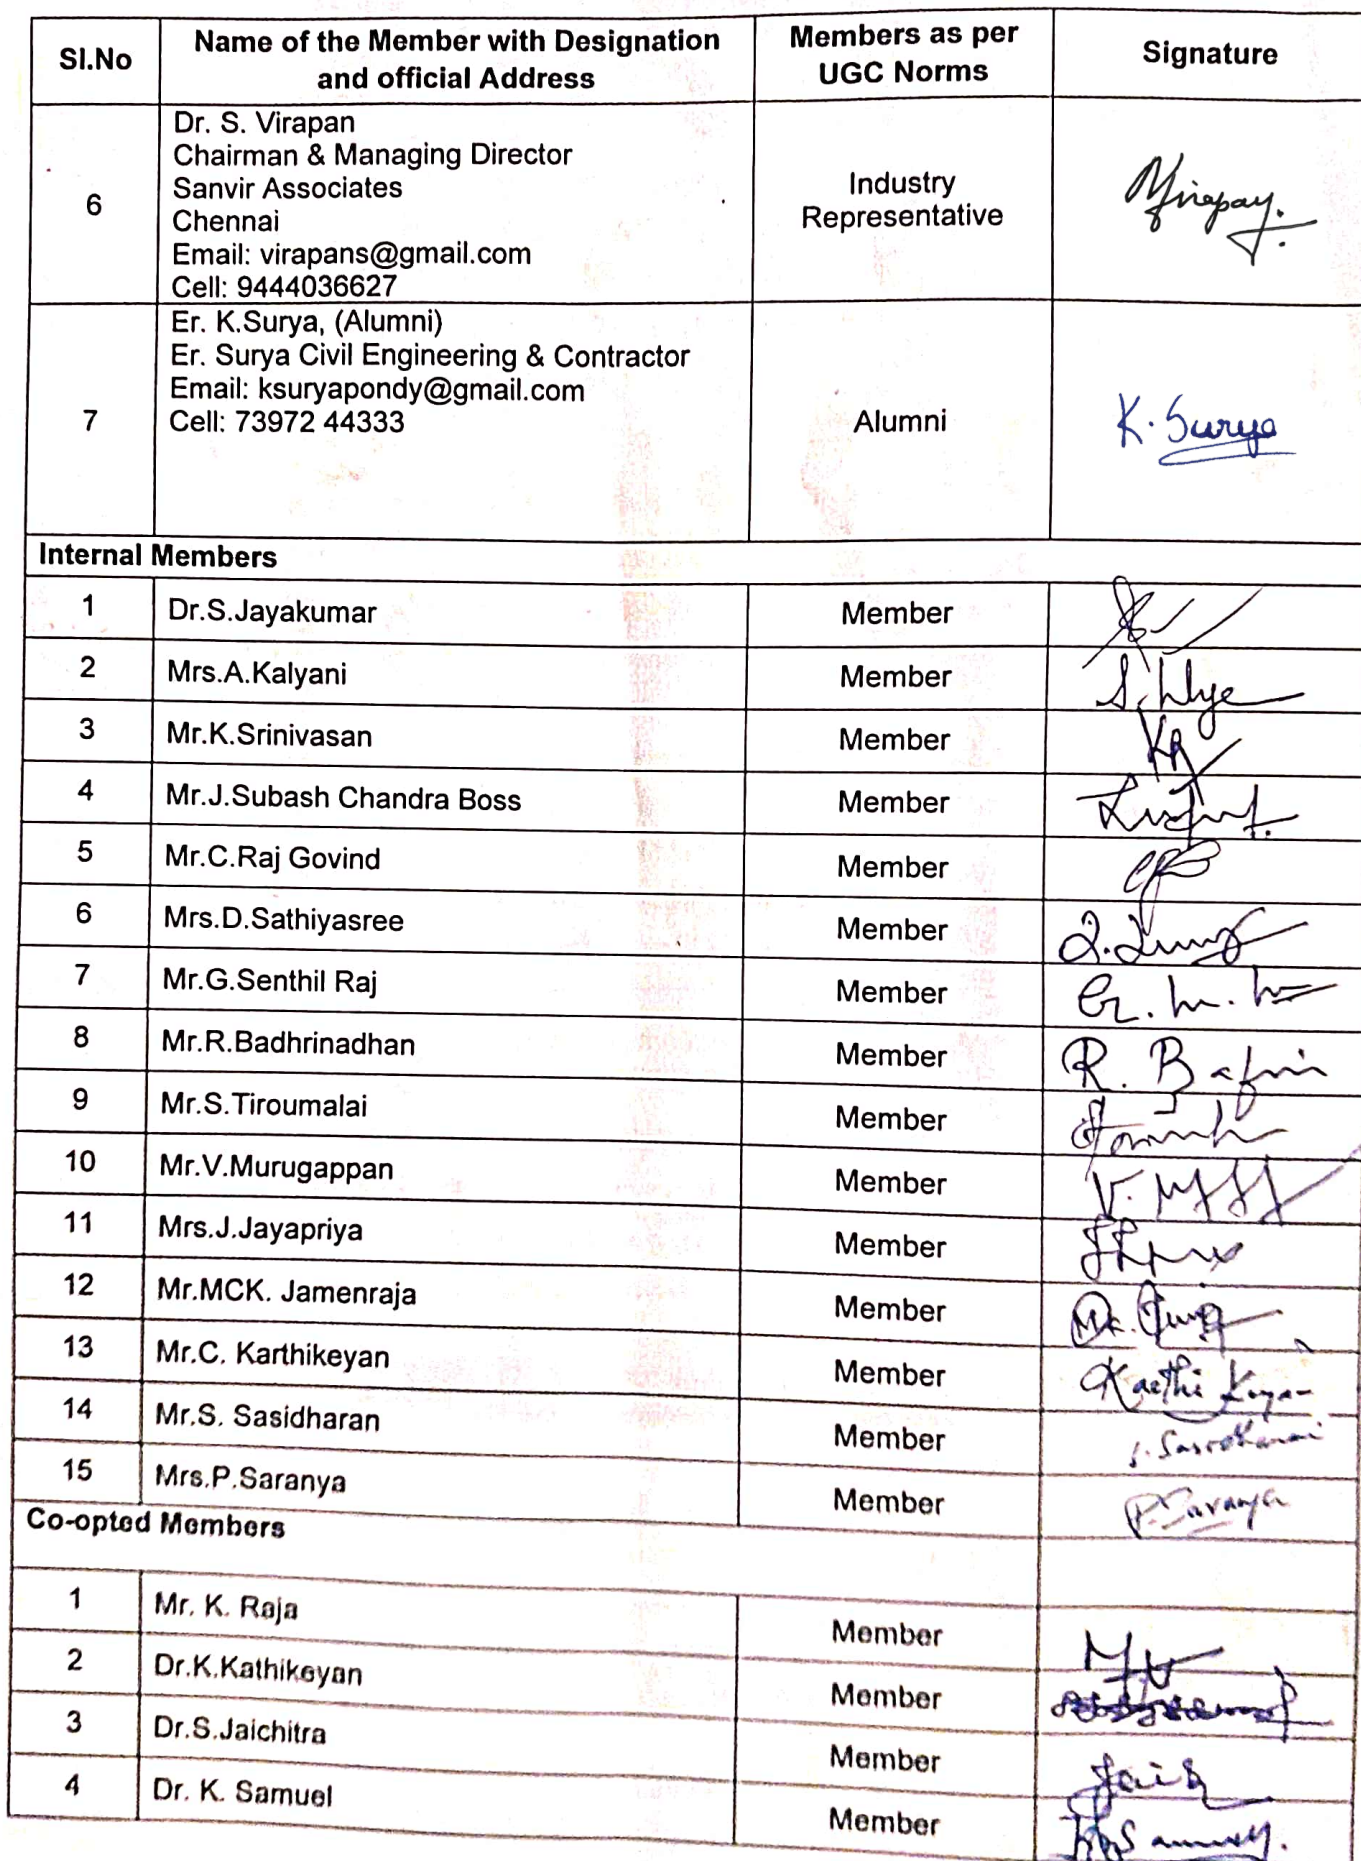 Sl.No
Name of the Member with Designation
and official Address
Members as per
UGC Norms
Signature
6
Dr. S. Virapan
Chairman & Managing Director
Sanvir Associates
Chennai
Email: virapans@gmail.com
Cell: 9444036627
Industry
Representative
7
Er. K.Surya, (Alumni)
Er. Surya Civil Engineering & Contractor
Email: ksuryapondy@gmail.com
Cell: 73972 44333
Alumni
K. Surya
Internal Members
1 Dr.S.Jayakumar Member
2 Mrs.A.Kalyani Member
3 Mr.K.Srinivasan Member
4 Mr.J.Subash Chandra Boss Member
5 Mr.C.Raj Govind Member
6 Mrs.D.Sathiyasree Member
7 Mr.G.Senthil Raj Member
8 Mr.R.Badhrinadhan Member
9 Mr.S.Tiroumalai Member
10 Mr.V.Murugappan Member
11 Mrs.J.Jayapriya Member
12 Mr.MCK. Jamenraja Member
13 Mr.C. Karthikeyan Member
14 Mr.S. Sasidharan Member
15 Mrs.P.Saranya Member P.Saranya
Co-opted Members
1 Mr. K. Raja Member
2 Dr.K.Kathikeyan Member
3 Dr.S.Jaichitra Member
4 Dr. K. Samuel Member